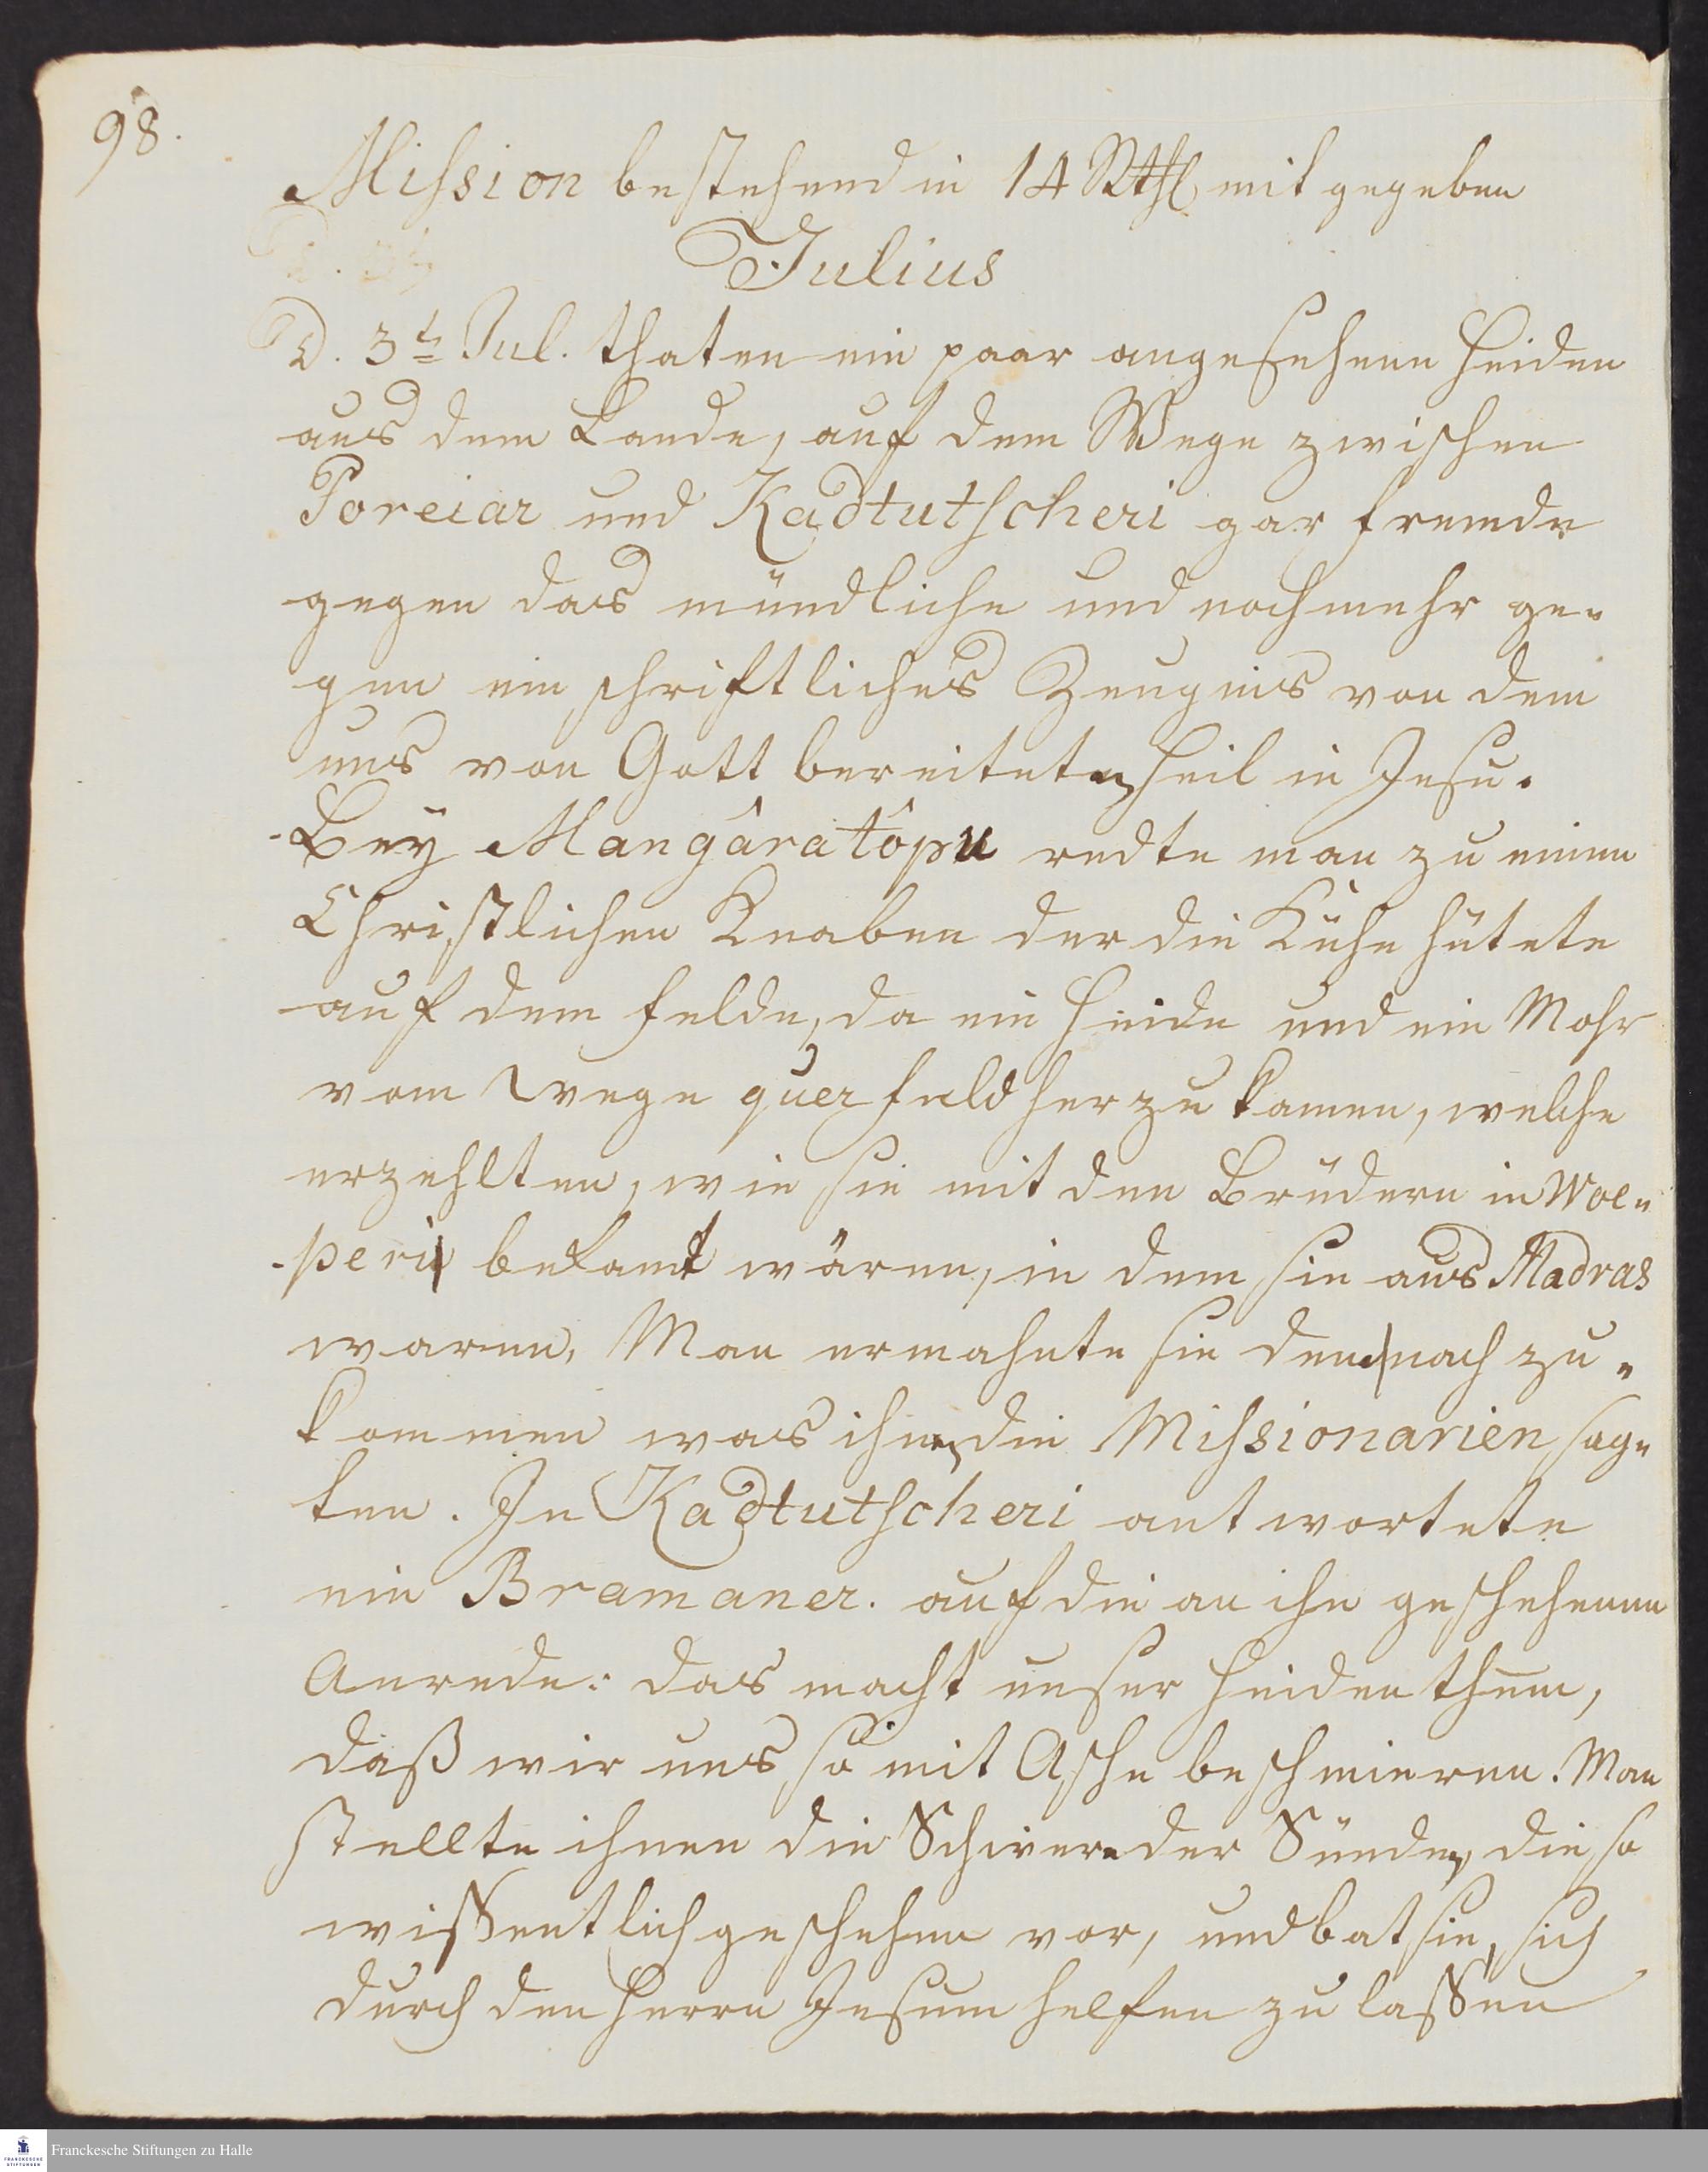 98.
Mission bestehend in 14 Rthl mit gegeben
Julius
D. 3t. Jul. thaten ein paar angesehene Heiden
aus dem Lande, auf dem Wege zwischen
Poreiar und Kadtutscheri gar fremde
gegen das mündliche und noch mehr ge-
gen ein schriftliches Zeugnis von dem
uns von Gott bereiteten Heil in Jesu.
Bey Mangâratôpu redte man zu einen
Christlichen Knaben der die Kühe hütete
auf dem Felde, da ein Heide und ein Mohr
vom Wege quer feld herzu kamen, welche
erzehlten, wie sie mit den Brüdern in Woe-
peri bekamt wären, in dem sie aus Madras
waren. Man ermahnte sie dem nach zu-
kommen was ihnen die Missionarien sag-
ten. In Kadtutscheri antwortete
ein Bramaner. auf die an ihn geschehenen
Anrede: das macht unser Heidenthum,
daß wir uns so mit Asche beschmieren. Man
stellte ihnen die Schwere der Sünden, die so
wissentlich geschehen vor, und bat sie, sich
durch den Herrn Jesum helfen zu lassen
Franckesche Stiftungen zu Halle
FRANCKESCHE
STIFTUNGEN